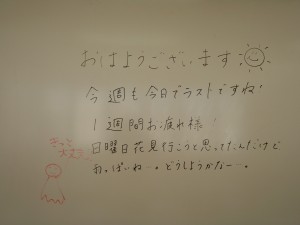 おはようございます
今週も今日でラストですね!
1週間お疲れ様!
日曜日花見行こうと思ってたんだけど
雨っぽいね…。どうしようかなー…。
きっと
大丈夫